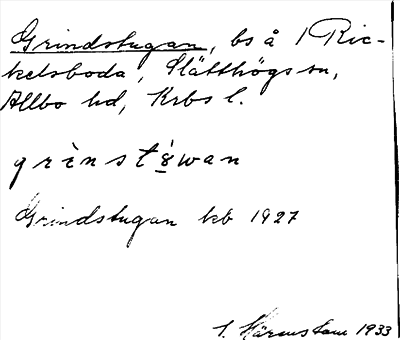 Grindstugan, bs å 1 Ric-
kelsboda, Slätthögs sn,
Allbo hd, Krbs l.
grìnstꞷ̀wan
Grindstugan kb 1927
1933